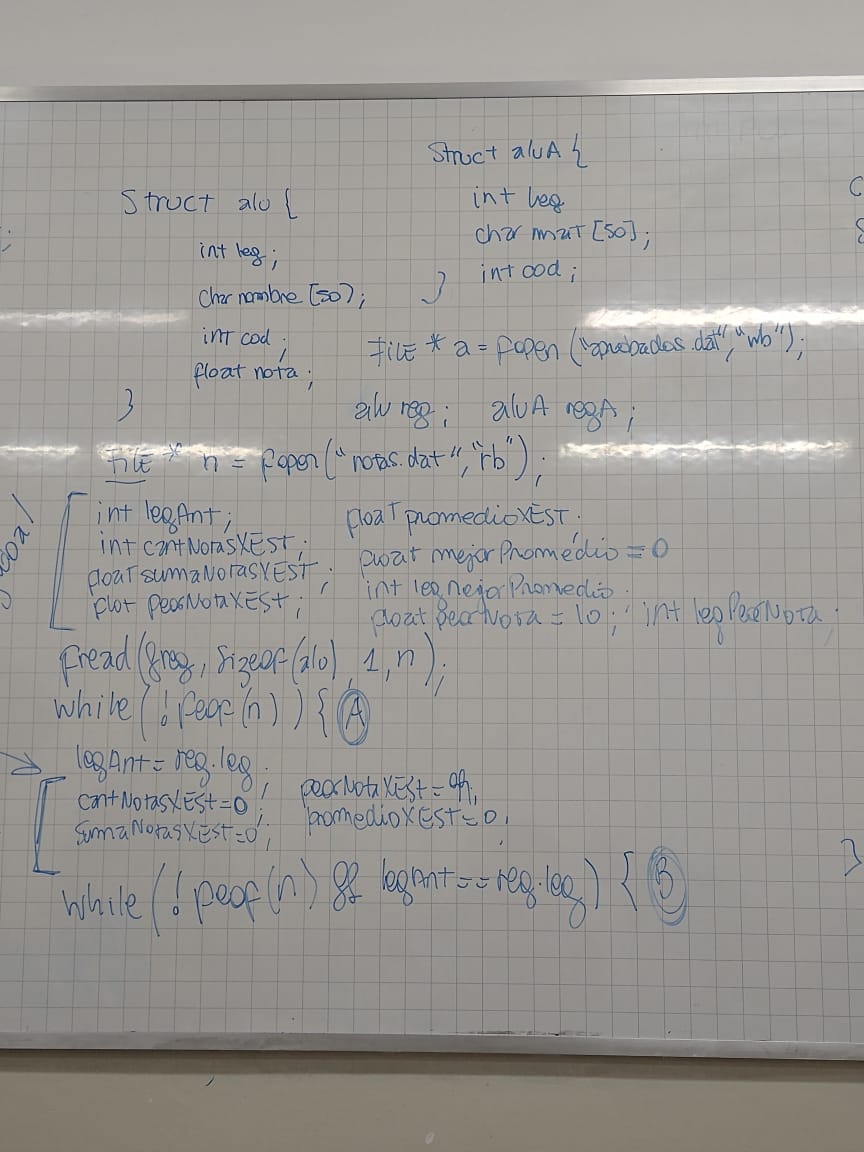 Struct aluA {
int leg
char mat [50];
int cod;
}
Struct alu {
int leg;
char nombre [50];
int cod;
float nota;
}
FILE * a = fopen ("aprobados.dat", "wb");
alu reg; aluA regA;
FILE * n = fopen ("notas.dat", "rb");
int legAnt; float promedioXEST;
int cantNotasXEST; float mejorPromedio = 0
float sumaNotasXEST; int legMejorPromedio
flot peorNotaXEST; float peorNota = 10; int legPeorNota;
fread (&reg, sizeof (alu), 1, n);
while (! feof (n)) { A
legAnt = reg.leg;
cantNotasXEST=0; peorNotaXEST=
sumaNotasXEST=0; promedioXEST=0;
while (! feof (n) && legAnt == reg.leg) { B
}